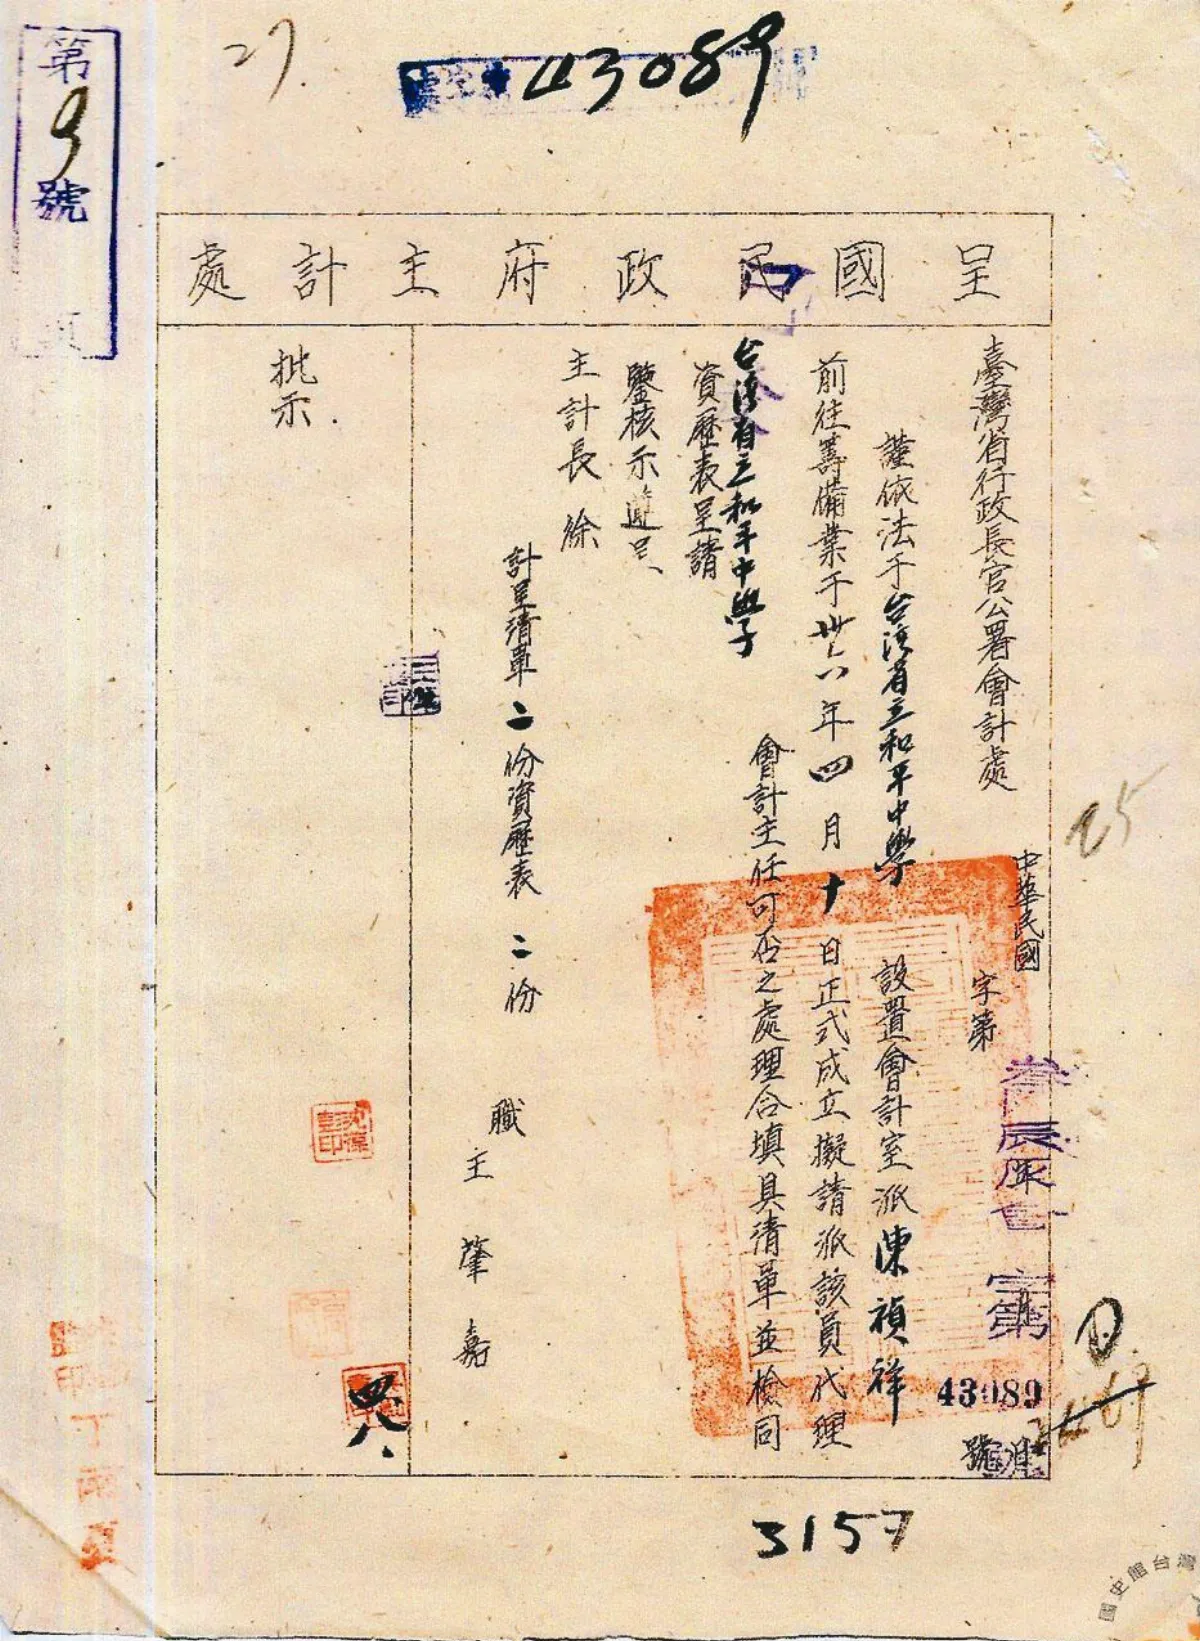 第9號
27
43089
呈國民政府主計處
臺灣省行政長官公署會計處
中華民國
字第
字第
43089
號
25
謹依法于台湾省立和平中學設置會計室派陳禎祥
前往籌備業于卅六年四月十日正式成立擬請派該員代理
台湾省立和平中學會計主任可否之處理合填具清單並檢同
資歷表呈請
鑒核示遵謹呈
主計長徐
計呈清單二份資歷表二份
職王肇嘉
批示
四八
3157
國史館台灣